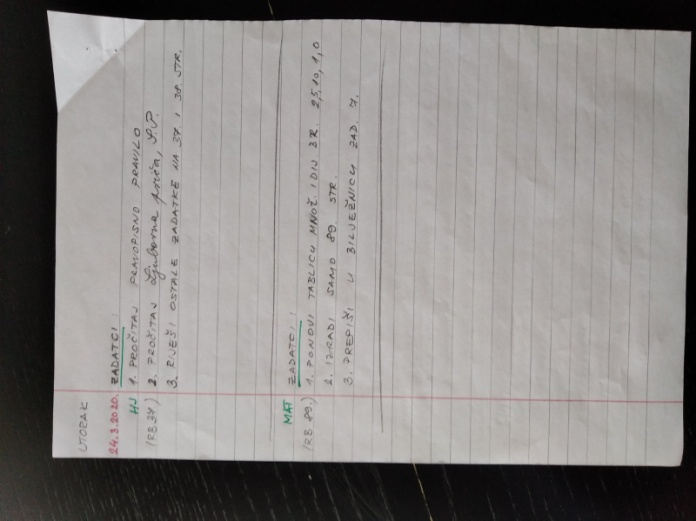 UTORAK
24.3.2020. ZADATCI:
HJ 1. PROČITAJ PRAVOPISNO PRAVILO
(RB 37) 2. PROČITAJ Ljubavna priča, S.P.
3. RIJEŠI OSTALE ZADATKE NA 37. I 38. STR.
MAT ZADATCI:
(RB 89.) 1. PONOVI TABLICU MNOŽ. I DIJ BR. 2,5,10,1,0
2. IZRADI SAMO 89. STR.
3. PREPIŠI U BILJEŽNICU ZAD. 7.